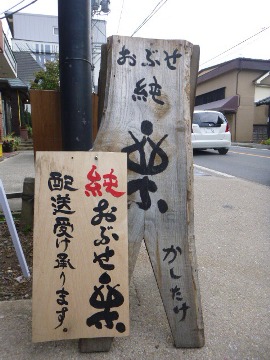 おぶせ
純
楽
かしたけ
純おぶせ楽
配送受け承ります。